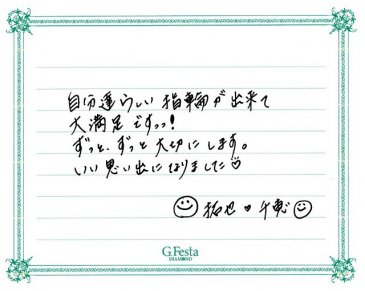 自分達らしい指輪が出来て
大満足ですっっ!
ずっと、ずっと大切にします。
いい思い出になりました♡
拓也 ♥ 千恵
G.Festa
DIAMOND